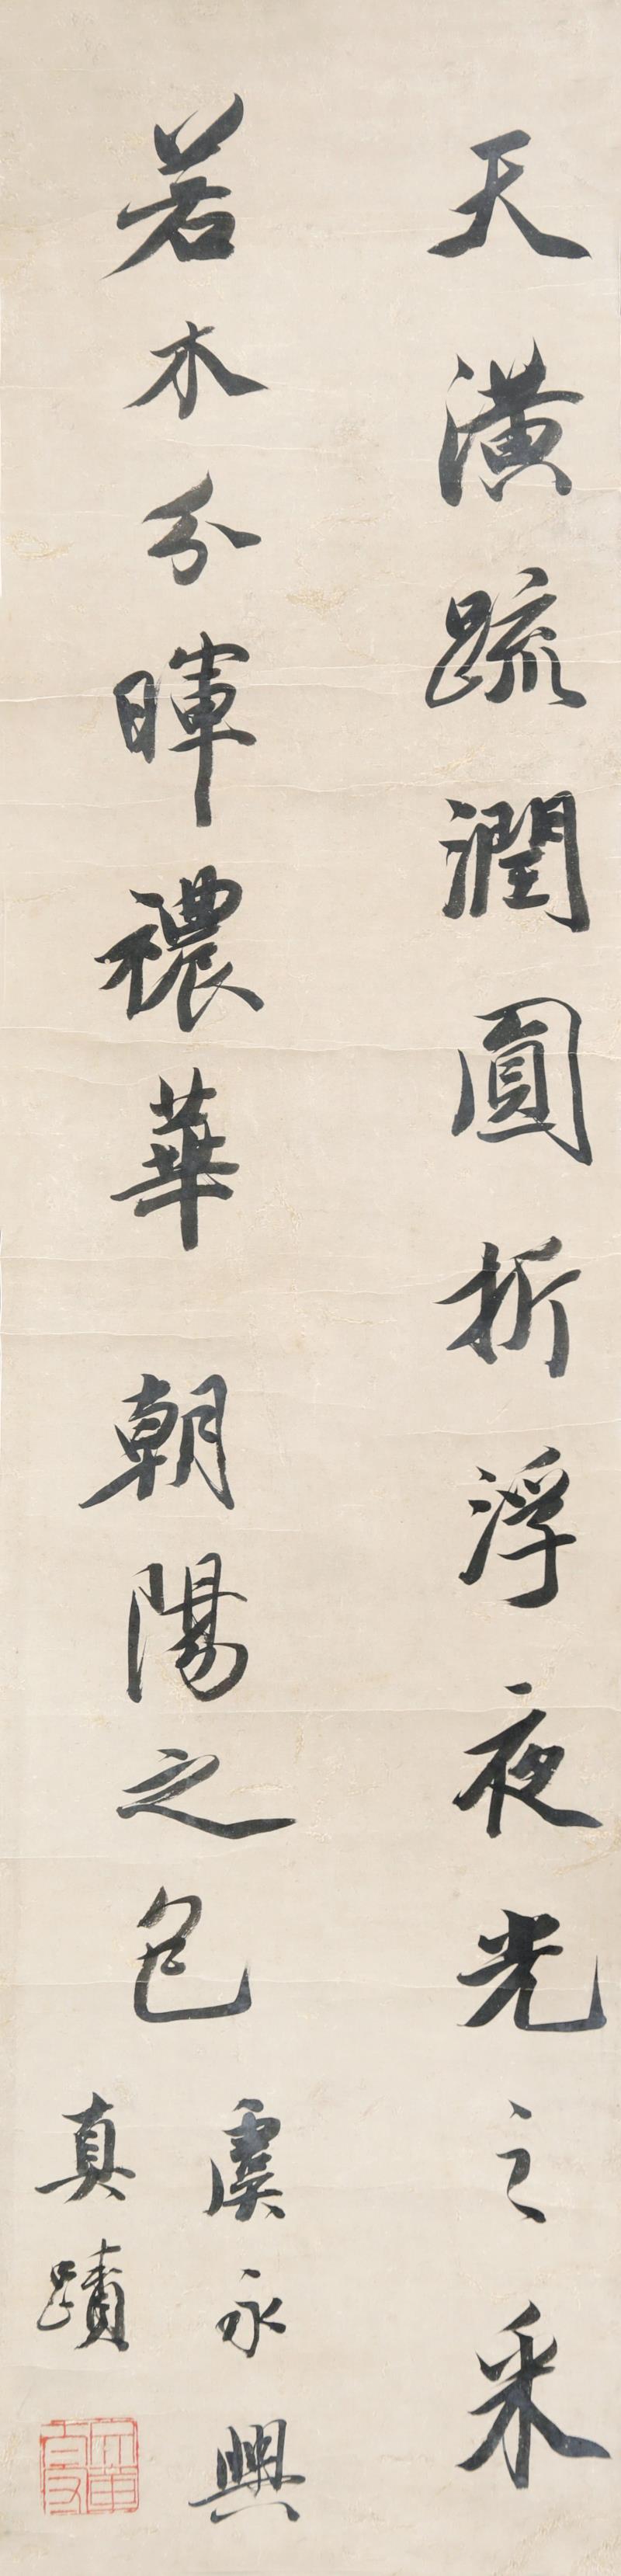 天潢疏潤圓折浮夜光之采
若木分暉禯華朝陽之色
虞永興
真蹟